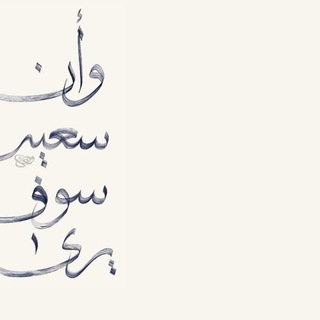 وأن
سعيه
سوف
يرى